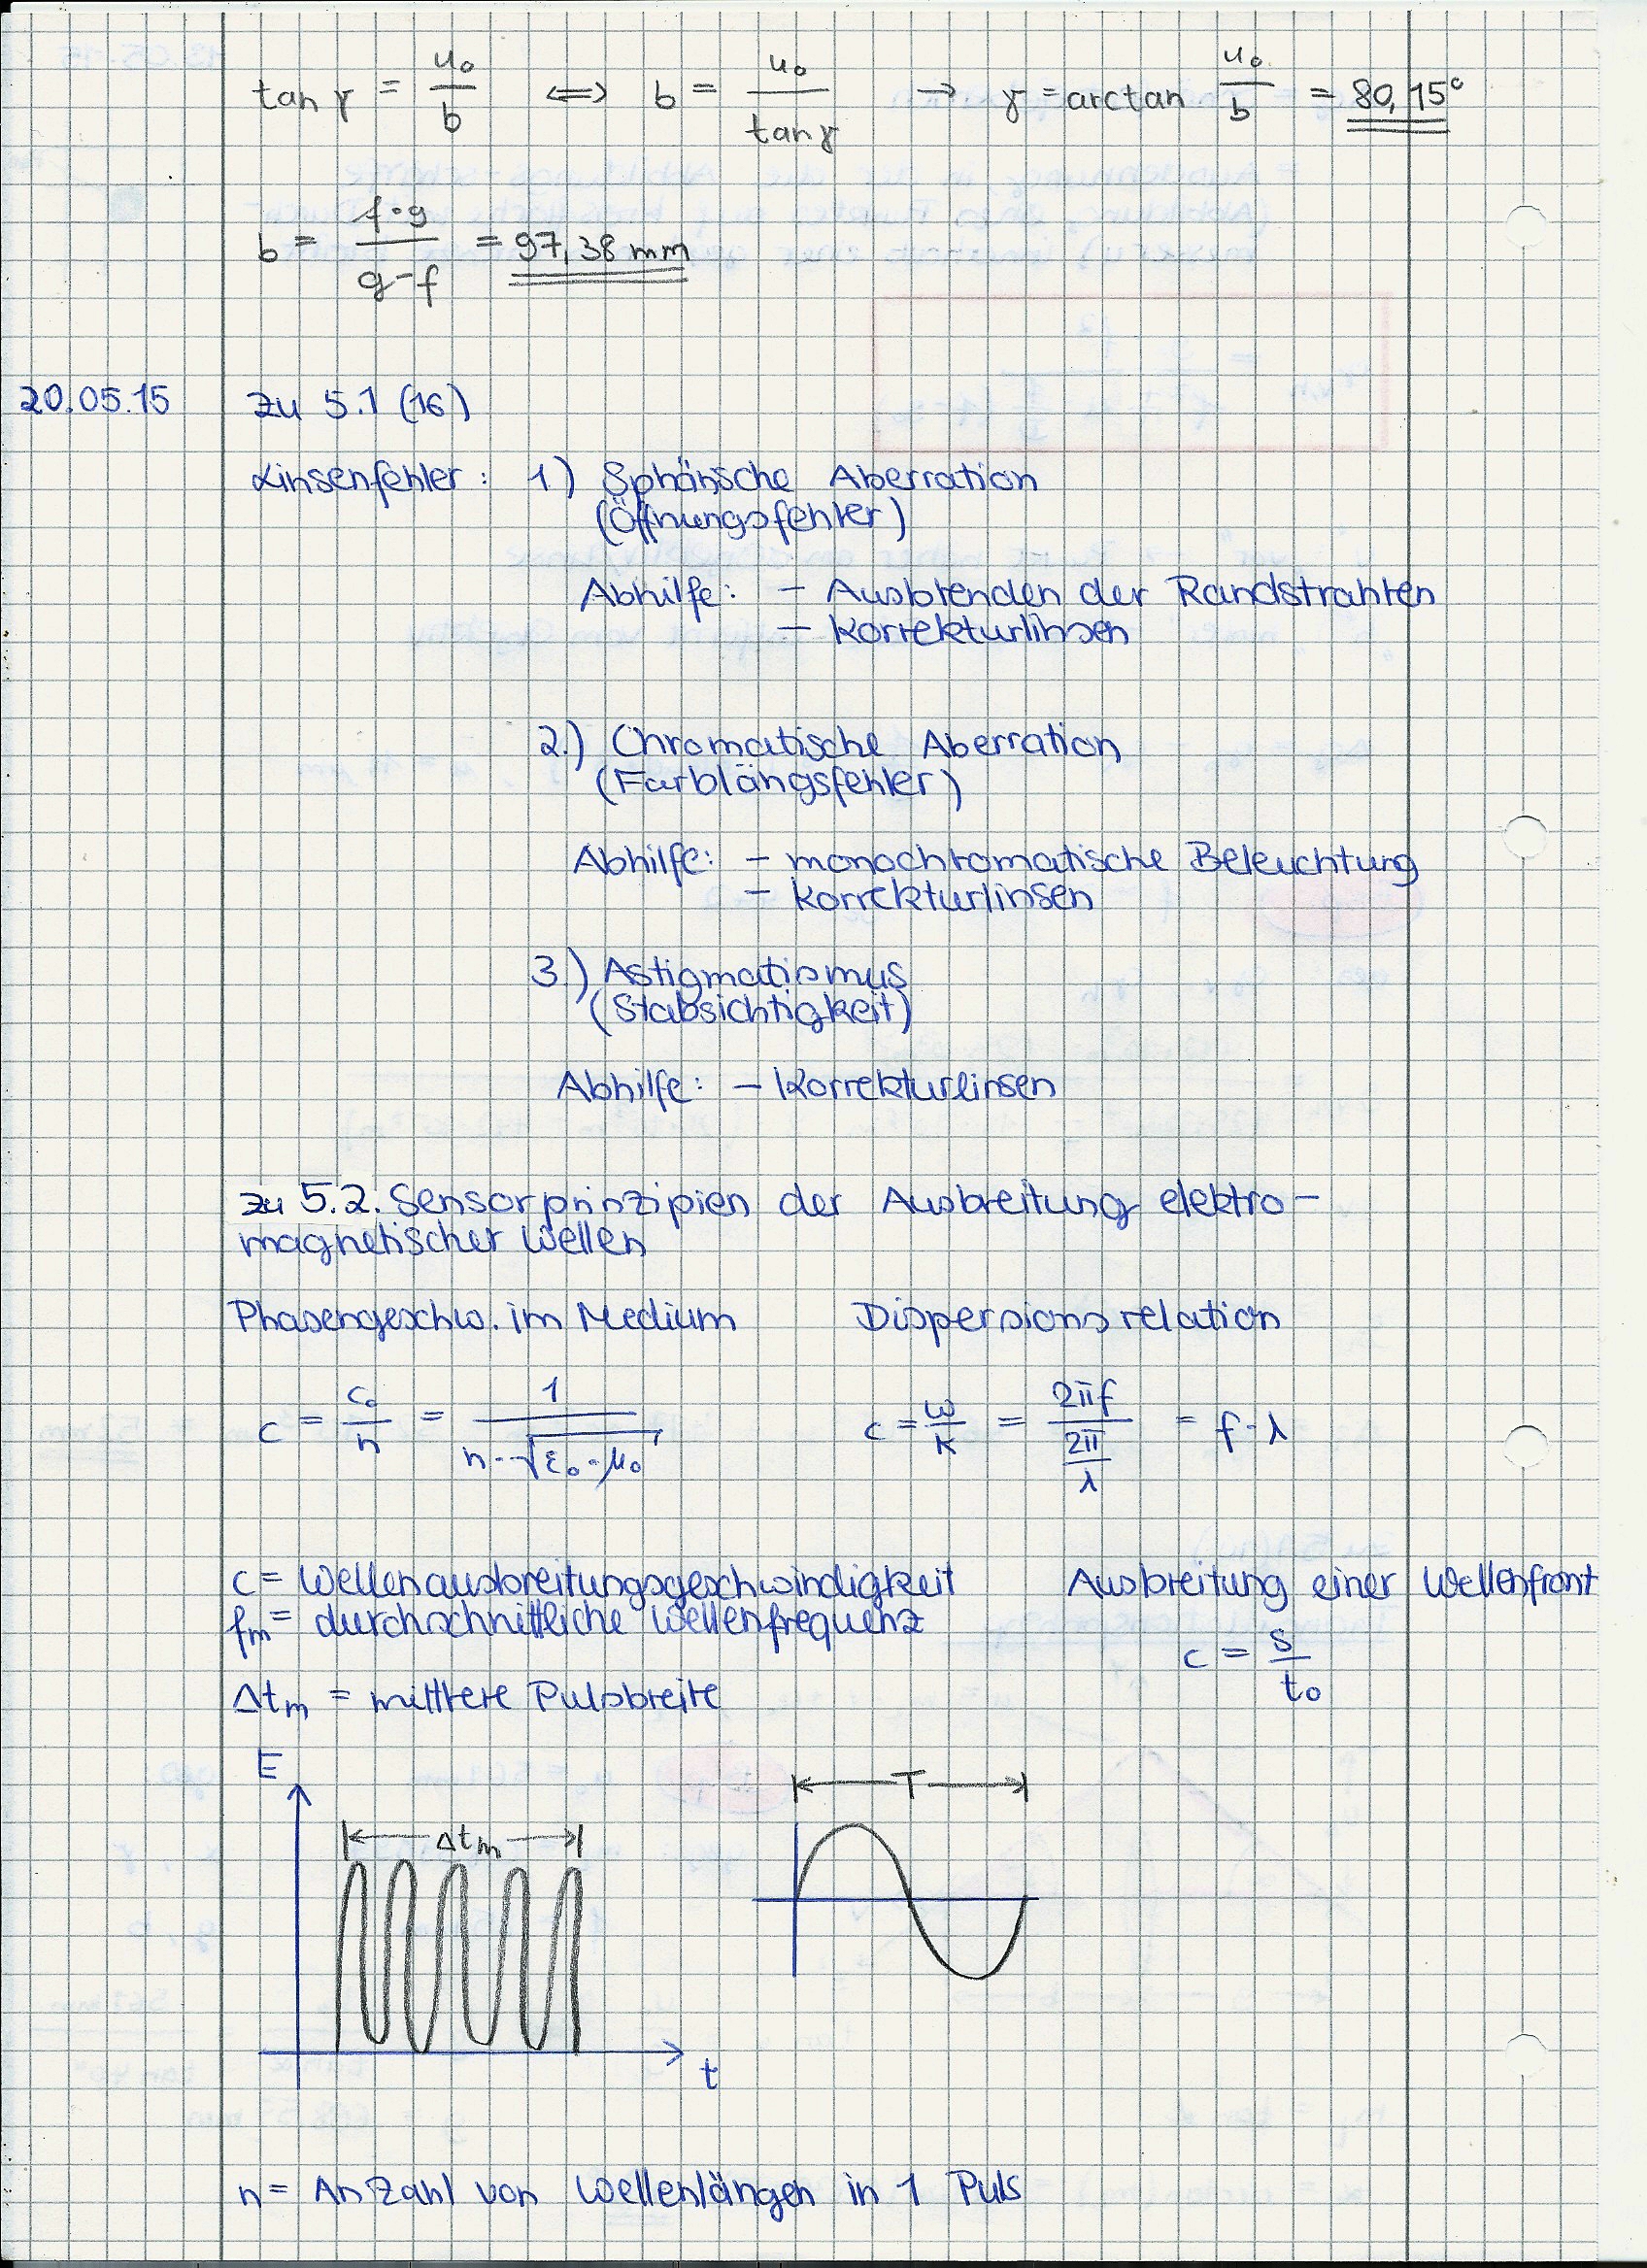 tan γ = u₀/b ⟺ b = u₀/tan γ → γ = arctan u₀/b = 80,15°
b = f·g/(g-f) = 97,38 mm
20.05.15 zu 5.1 (16)
Linsenfehler: 1) Sphärische Aberration
(Öffnungsfehler)
Abhilfe: – Ausblenden der Randstrahlen
– Korrekturlinsen
2.) Chromatische Aberration
(Farblängsfehler)
Abhilfe: – monochromatische Beleuchtung
– Korrekturlinsen
3.) Astigmatismus
(Stabsichtigkeit)
Abhilfe: – Korrekturlinsen
zu 5.2. Sensorprinzipien der Ausbreitung elektro-
magnetischer Wellen
Phasengeschw. im Medium Dispersionsrelation
c = c₀/n = 1/(n·√(ε₀·μ₀)) c = ω/k = 2πf/(2π/λ) = f·λ
c = Wellenausbreitungsgeschwindigkeit Ausbreitung einer Wellenfront
fₘ = durchschnittliche Wellenfrequenz
c = s/t₀
Δtₘ = mittlere Pulsbreite
E
T
Δtₘ
t
n = Anzahl von Wellenlängen in 1 Puls